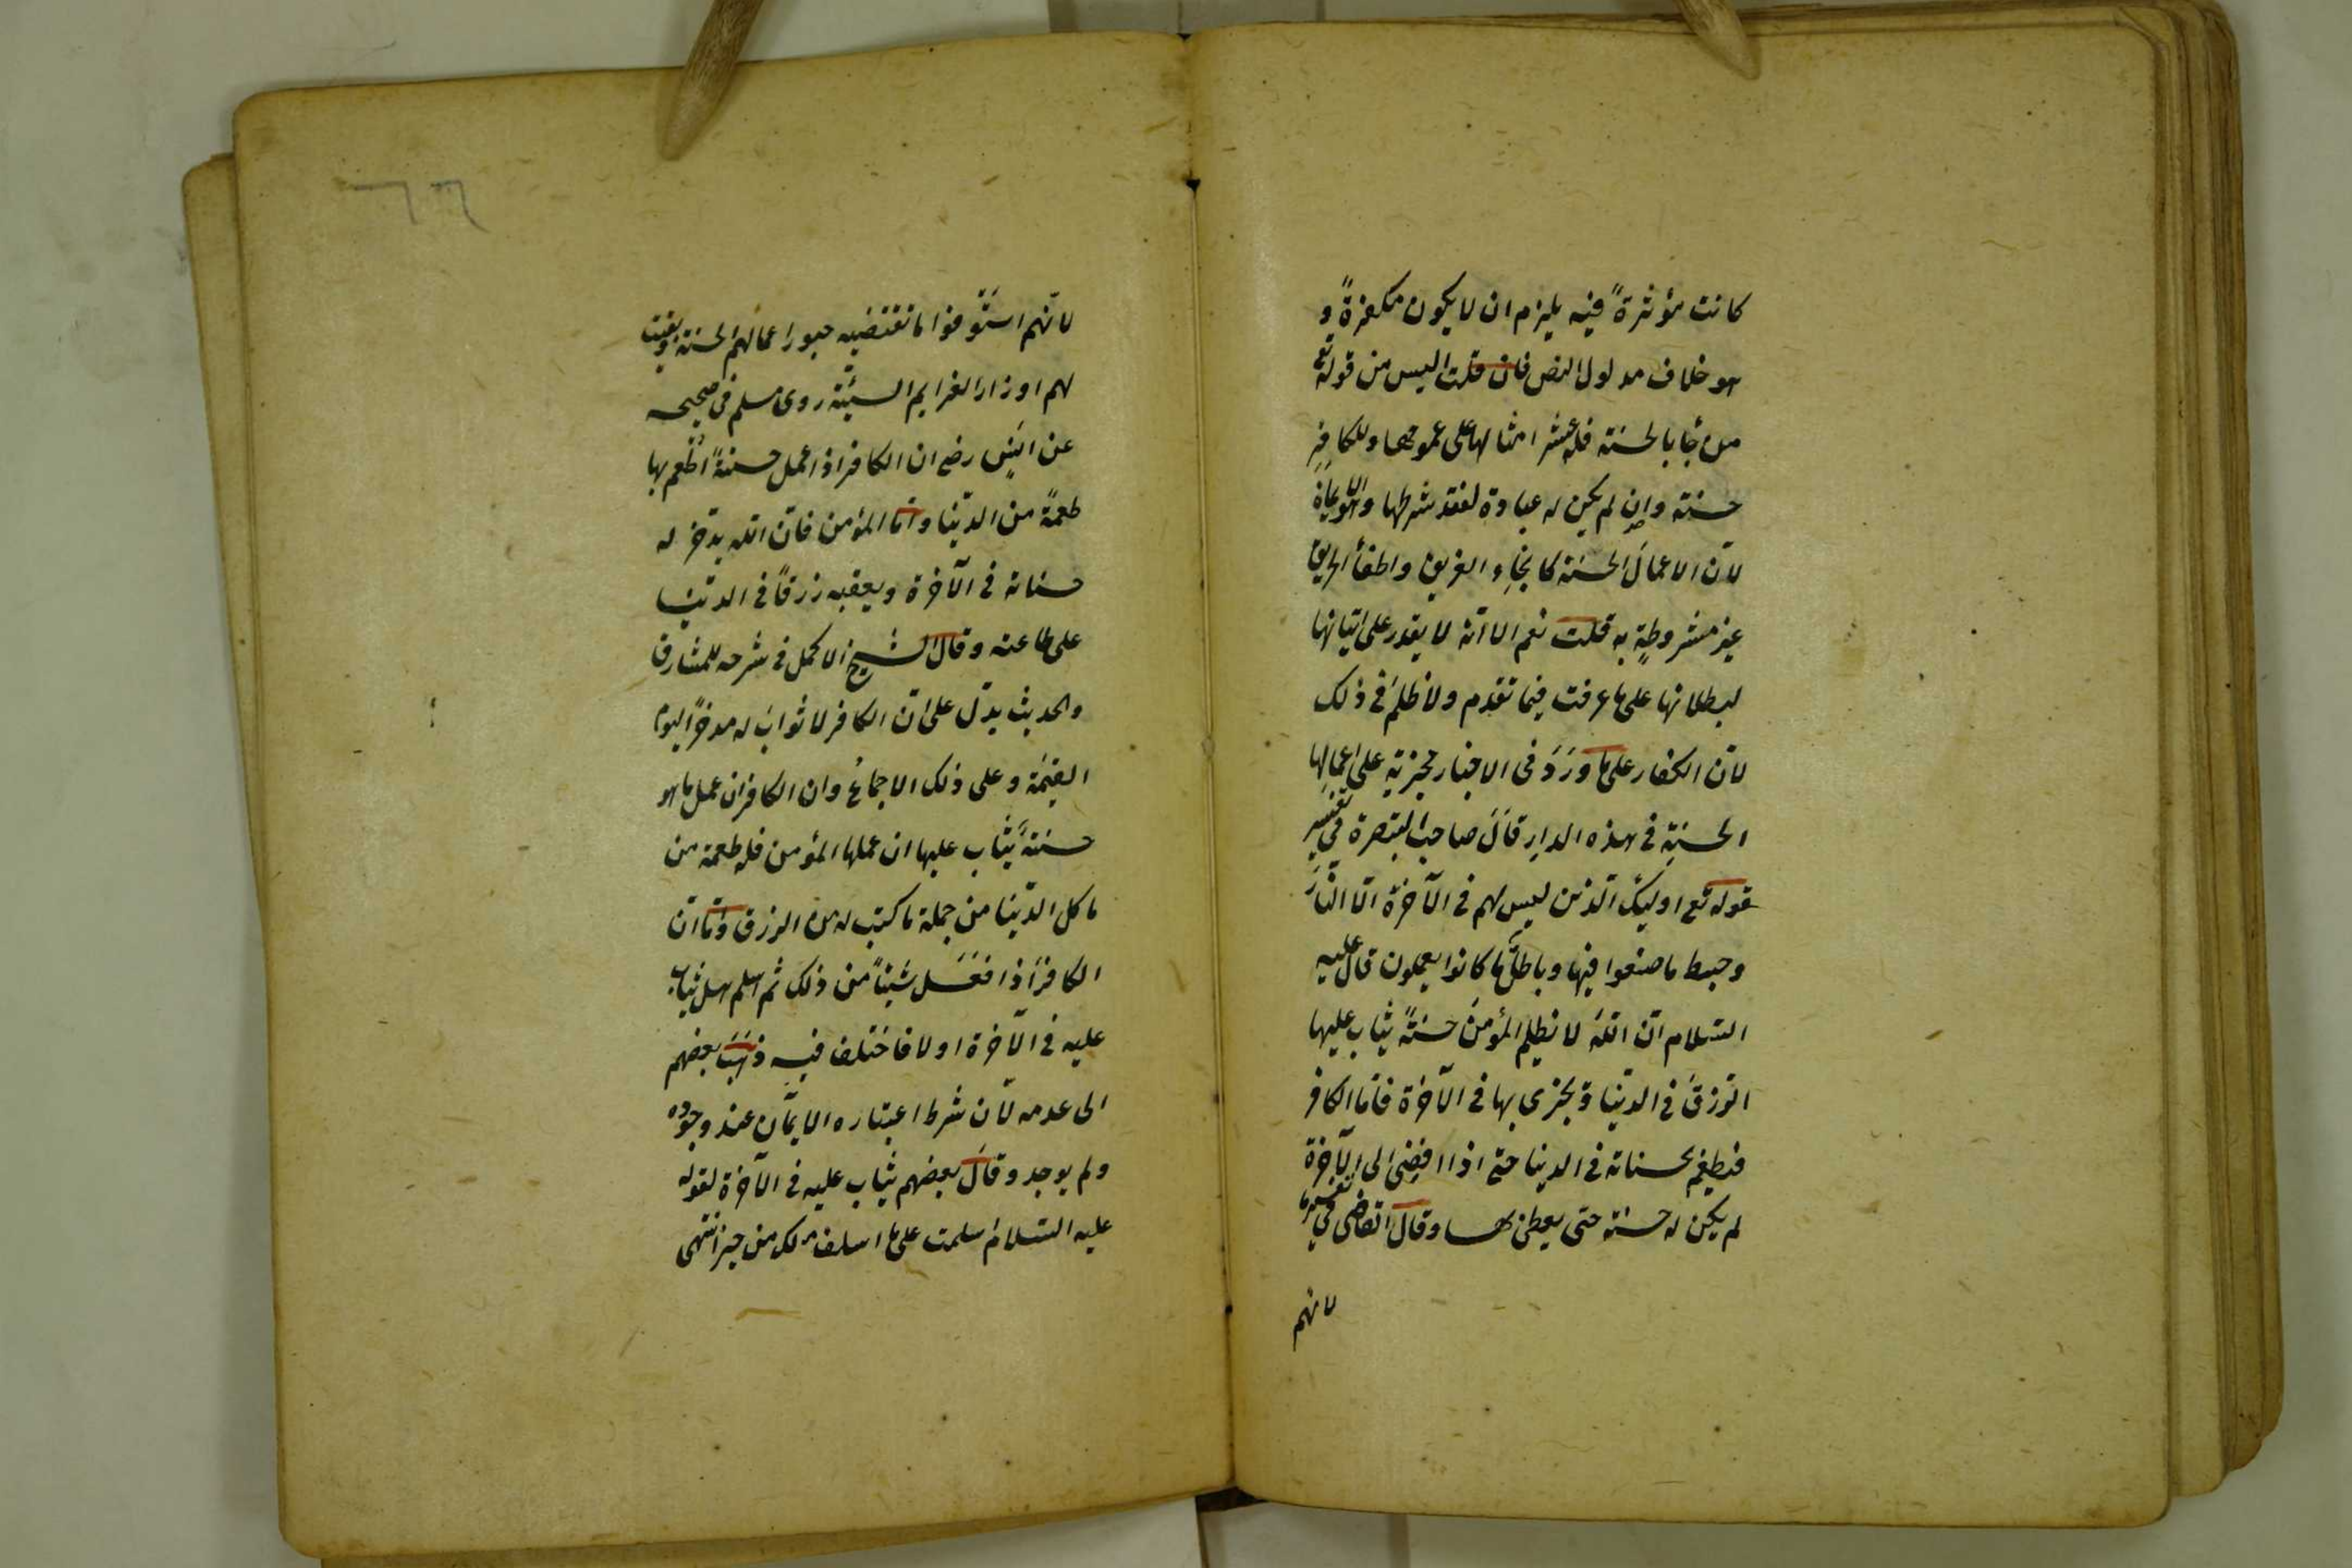 كانت مؤثرةً فيه يلزم ان لا يكون مكفرةً و
هو خلاف مدلول النص فان قلت اليس من قوله تع
من جأ بالحسنة فله عشر امثالها على عمومها وللكافر
حسنة وان لم يكن له عبادة لفقد شرطها وهو الايمان
لان الاعمال الحسنة كانجاء الغريق واطفأ الحريق
غير مشروطةٍ به قلت نعم الا انه لا يقدر على اتيانها
لبطلانها على ما عرفت فيما تقدم ولا ظلم في ذلك
لان الكفار على ما وَرَدَ في الاخبار مجزية على اعمالها
الحسنة في هذه الدار قال صاحب التبصرة في تفسير
قوله تع اولئك الذين ليس لهم في الآخرة الا النارَ
وحبط ما صنعوا فيها وباطلٌ ما كانوا يعملون قال عليه
السلام ان اللهَ لا يظلم المؤمنَ حسنةً يثاب عليها
الرّزقَ في الدنيا ويجزى بها في الآخرة فاما الكافر
فيطعم بحسناته في الدنيا حتى اذا افضى الى الآخرة
لم يكن له حسنة حتى يعطى بها وقال القاضى في تفسيرها
لانهم
٦٦
لانهم استَوفوا ما تقتضيه صور اعمالهم الحسنة وبقيت
لهم اوزار العزايم السيّئة روى مسلم في صحيحه
عن انسٍ رضع ان الكافر اذا عمل حسنةً اُطعم بها
طعمةً من الدنيا واما المؤمن فان الله يدّخر له
حسناته في الآخرة ويعقبه رزقًا في الدنيا
على طاعته وقال الشيخ الاكمل في شرحه للمشارق
والحديث يدل على ان الكافر لا ثوابَ له مدخرًا ليوم
القيٰمة وعلى ذلك الاجماعُ وان الكافر ان عمل ما هو
حسنةً يُثاب عليها ان عملها المؤمن فله طعمة من
ماكل الدّنيا من جملة ما كتب له من الرزق واما ان
الكافرَ اذا فَعَل شيئًا من ذلك ثم اسلم هل يُثاب
عليه في الآخرة او لا فاختلف فيه ذهبَ بعضهم
الى عدمه لان شرط اعتباره الايمان عند وجوده
ولم يوجد وقالَ بعضهم يُثاب عليه في الآخرة لقوله
عليه السّلام اسلمت على ما اسلف لك من خير انتهى